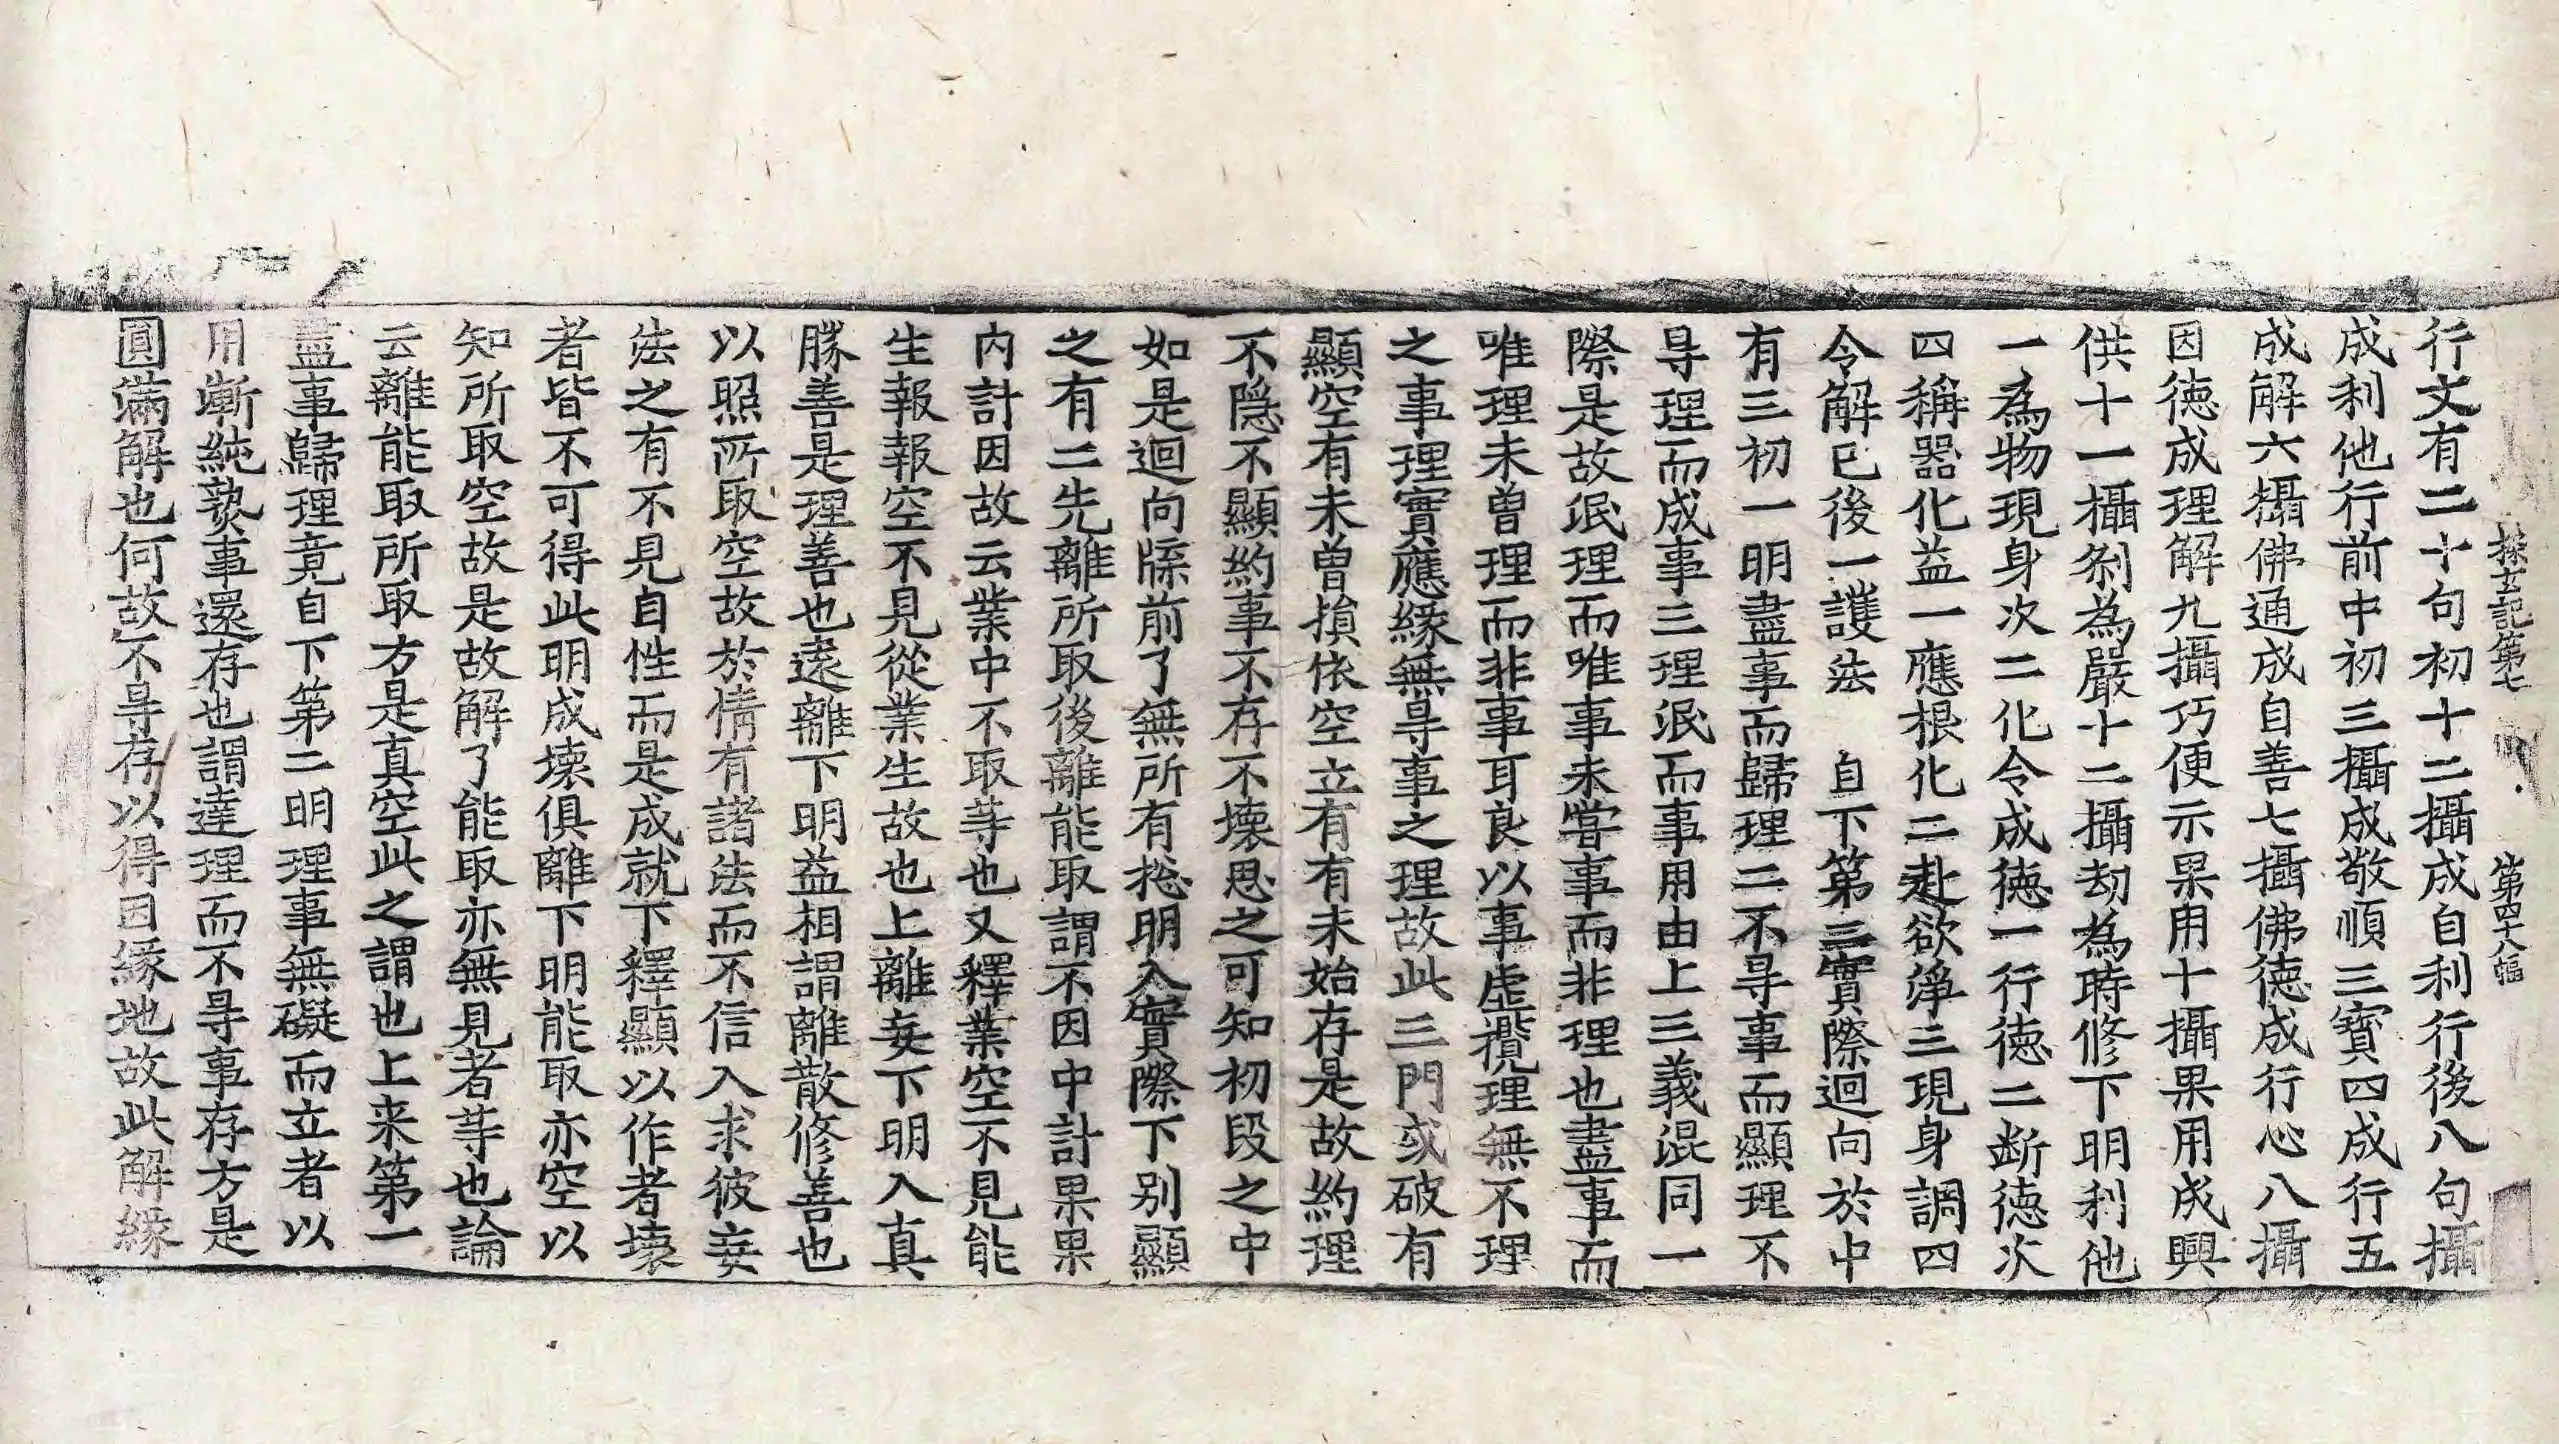 探玄記第七 第四十八幅
行文有二十句初十二攝成自利行後八句攝
成利他行前中初三攝成敬順三寶四成行五
成解六攝佛通成自善七攝佛德成行心八攝
因德成理解九攝巧便示果用十攝果用成興
供十一攝刹為嚴十二攝劫為時修下明利他
一為物現身次二化令成德一行德二断德次
四稱器化益一應根化二赴欲淨三現身調四
令解已後一護法 自下第三實際迴向於中
有三初一明盡事而歸理二不㝵事而顯理不
㝵理而成事三理泯而事用由上三義混同一
際是故泯理而唯事未甞事而非理也盡事而
唯理未曽理而非事耳良以事虚攬理無不理
之事理實應縁無㝵事之理故此三門或破有
顯空有未曽損依空立有有未始存是故約理
不隠不顯約事不存不壊思之可知初段之中
如是迴向牒前了無所有揔明入實際下别顯
之有二先離所取後離能取謂不因中計果果
内計因故云業中不取䓁也又釋業空不見能
生報報空不見從業生故也上離妄下明入真
勝善是理善也逺離下明益相謂離散修善也
以照所取空故於情有諸法而不信入求彼妄
法之有不見自性而是成就下釋顯以作者壊
者皆不可得此明成壊俱離下明能取亦空以
知所取空故是故解了能取亦無見者䓁也論
云離能取所取方是真空此之謂也上来第一
盡事歸理竟自下第二明理事無礙而立者以
用漸純熟事還存也謂達理而不㝵事存方是
圓滿解也何故不㝵存以得因縁地故此解縁